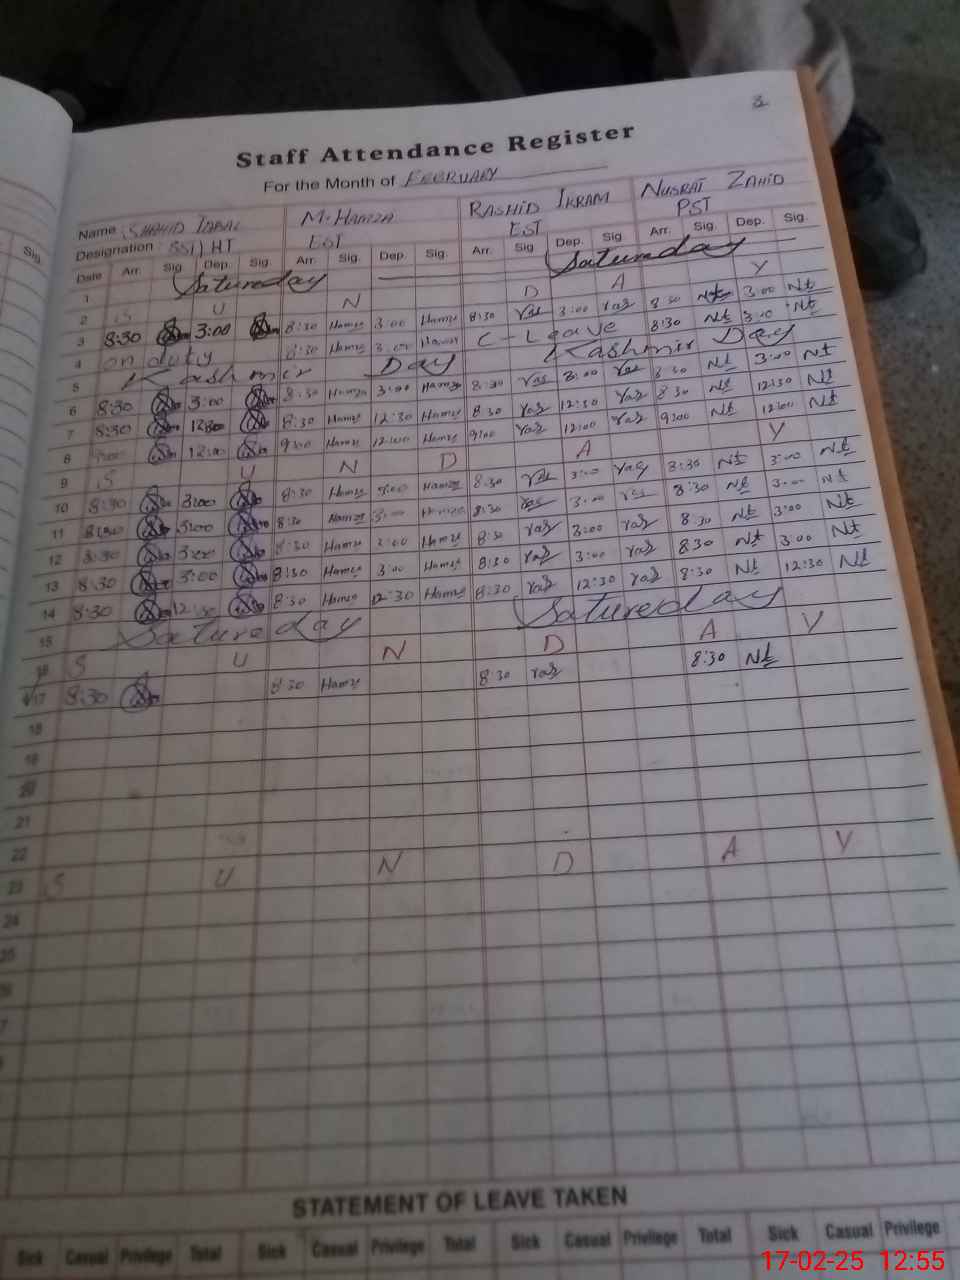 3
Staff Attendance Register
For the Month of FEBRUARY
Name SHAHID IQBAL M. HAMZA RASHID IKRAM NUSRAT ZAHID
Designation SST HT EST EST PST
Sig
Date Arr. Sig. Dep. Sig. Arr. Sig. Dep. Sig. Arr. Sig Dep. Sig Arr. Sig. Dep. Sig.
1 Satureday Satureday
2 S U N D A Y
3 8:30 3:00 8:30 Hamza 3:00 Hamza 8:30 3:00 8:30 Nt 3:00 Nt
4 on duty 8:30 Hamza 3:00 Hamza C-Leave 8:30 Nt 3:00 Nt
5 Kashmir Day Kashmir Day
6 8:30 3:00 8:30 Hamza 3:00 Hamza 8:30 3:00 8:30 Nt 3:00 Nt
7 8:30 12:30 8:30 Hamza 12:30 Hamza 8:30 12:30 8:30 Nt 12:30 Nt
8 12:00 9:00 Hamza 12:00 Hamza 9:00 12:00 9:00 Nt 12:00 Nt
9 S U N D A Y
10 8:30 3:00 8:30 Hamza 3:00 Hamza 8:30 3:00 8:30 Nt 3:00 Nt
11 8:30 3:00 8:30 Hamza 3:00 Hamza 8:30 3:00 8:30 Nt 3:00 Nt
12 8:30 3:00 8:30 Hamza 3:00 Hamza 8:30 3:00 8:30 Nt 3:00 Nt
13 8:30 3:00 8:30 Hamza 3:00 Hamza 8:30 3:00 8:30 Nt 3:00 Nt
14 8:30 12:30 8:30 Hamza 12:30 Hamza 8:30 12:30 8:30 Nt 12:30 Nt
15 Satureday Satureday
16 S U N D A Y
17 8:30 8:30 Hamza 8:30 8:30 Nt
18
19
20
21
22
23 S U N D A Y
24
STATEMENT OF LEAVE TAKEN
Sick Casual Privilege Total Sick Casual Privilege Total Sick Casual Privilege Total Sick Casual Privilege
17-02-25 12:55